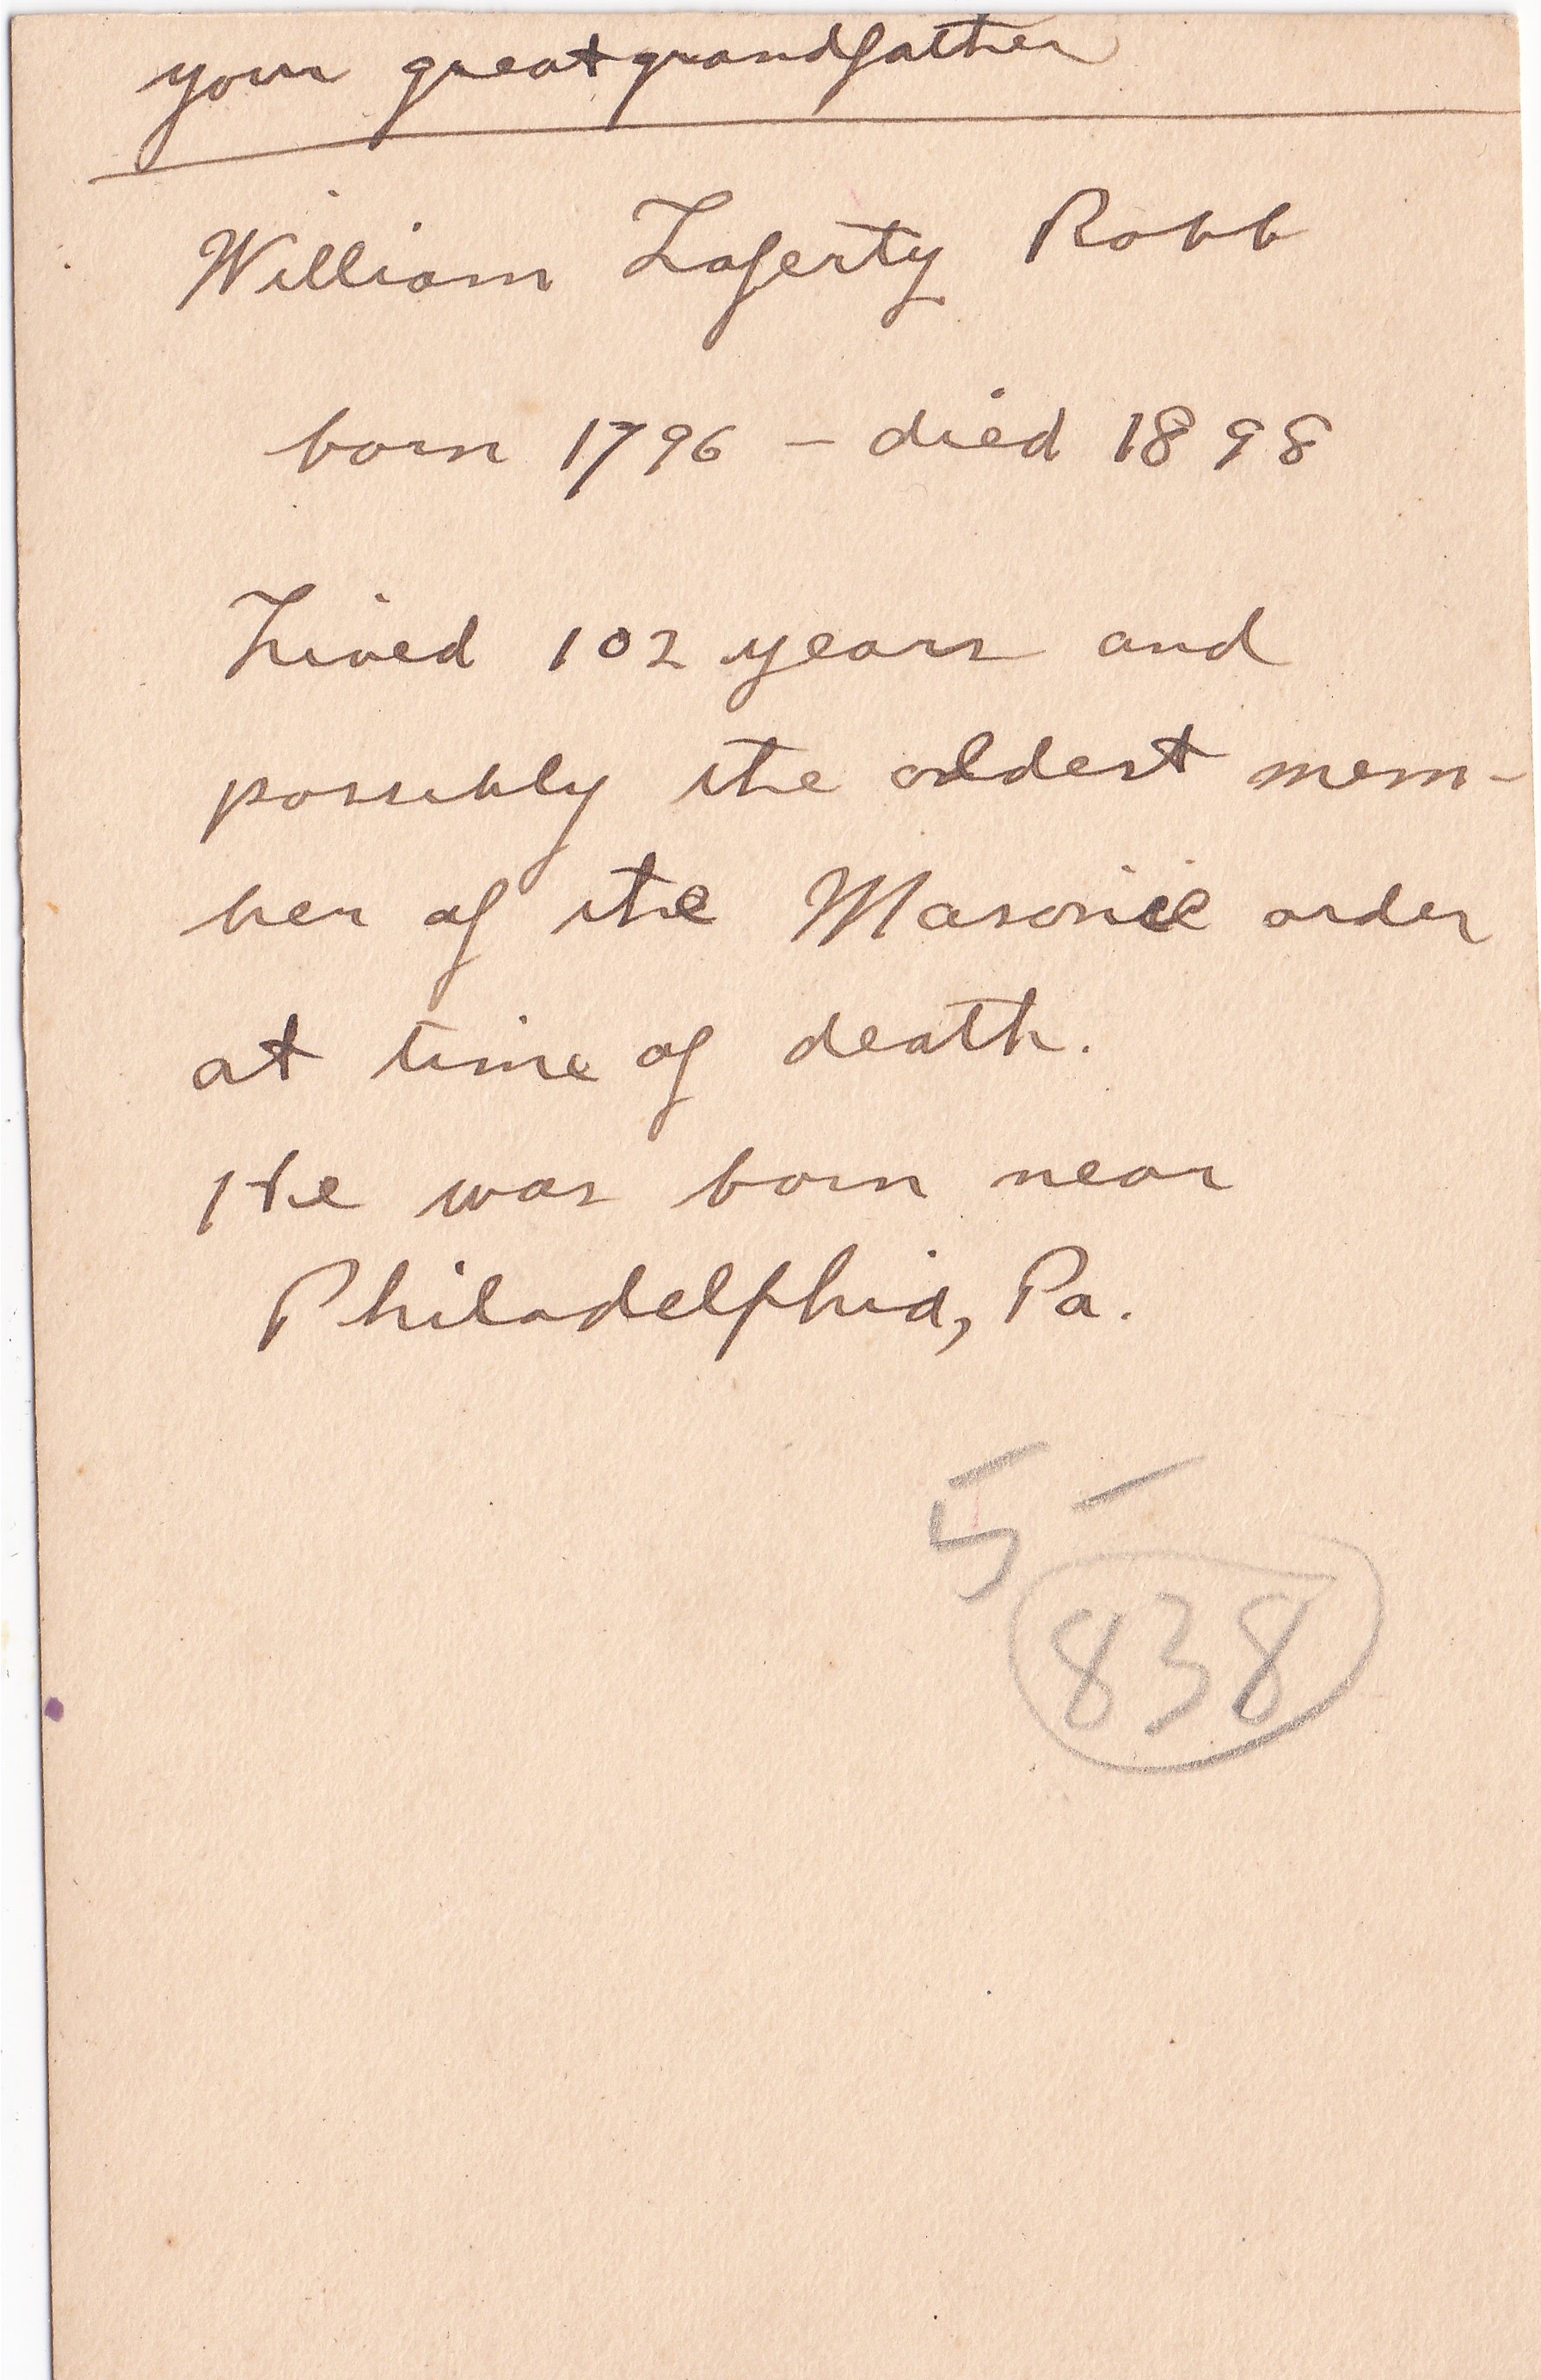 your great grandfather
William Laferty Robb
born 1796 – died 1898
Lived 102 years and
possibly the oldest mem-
ber of the Masonic order
at time of death.
He was born near
Philadelphia, Pa.
5 –
838